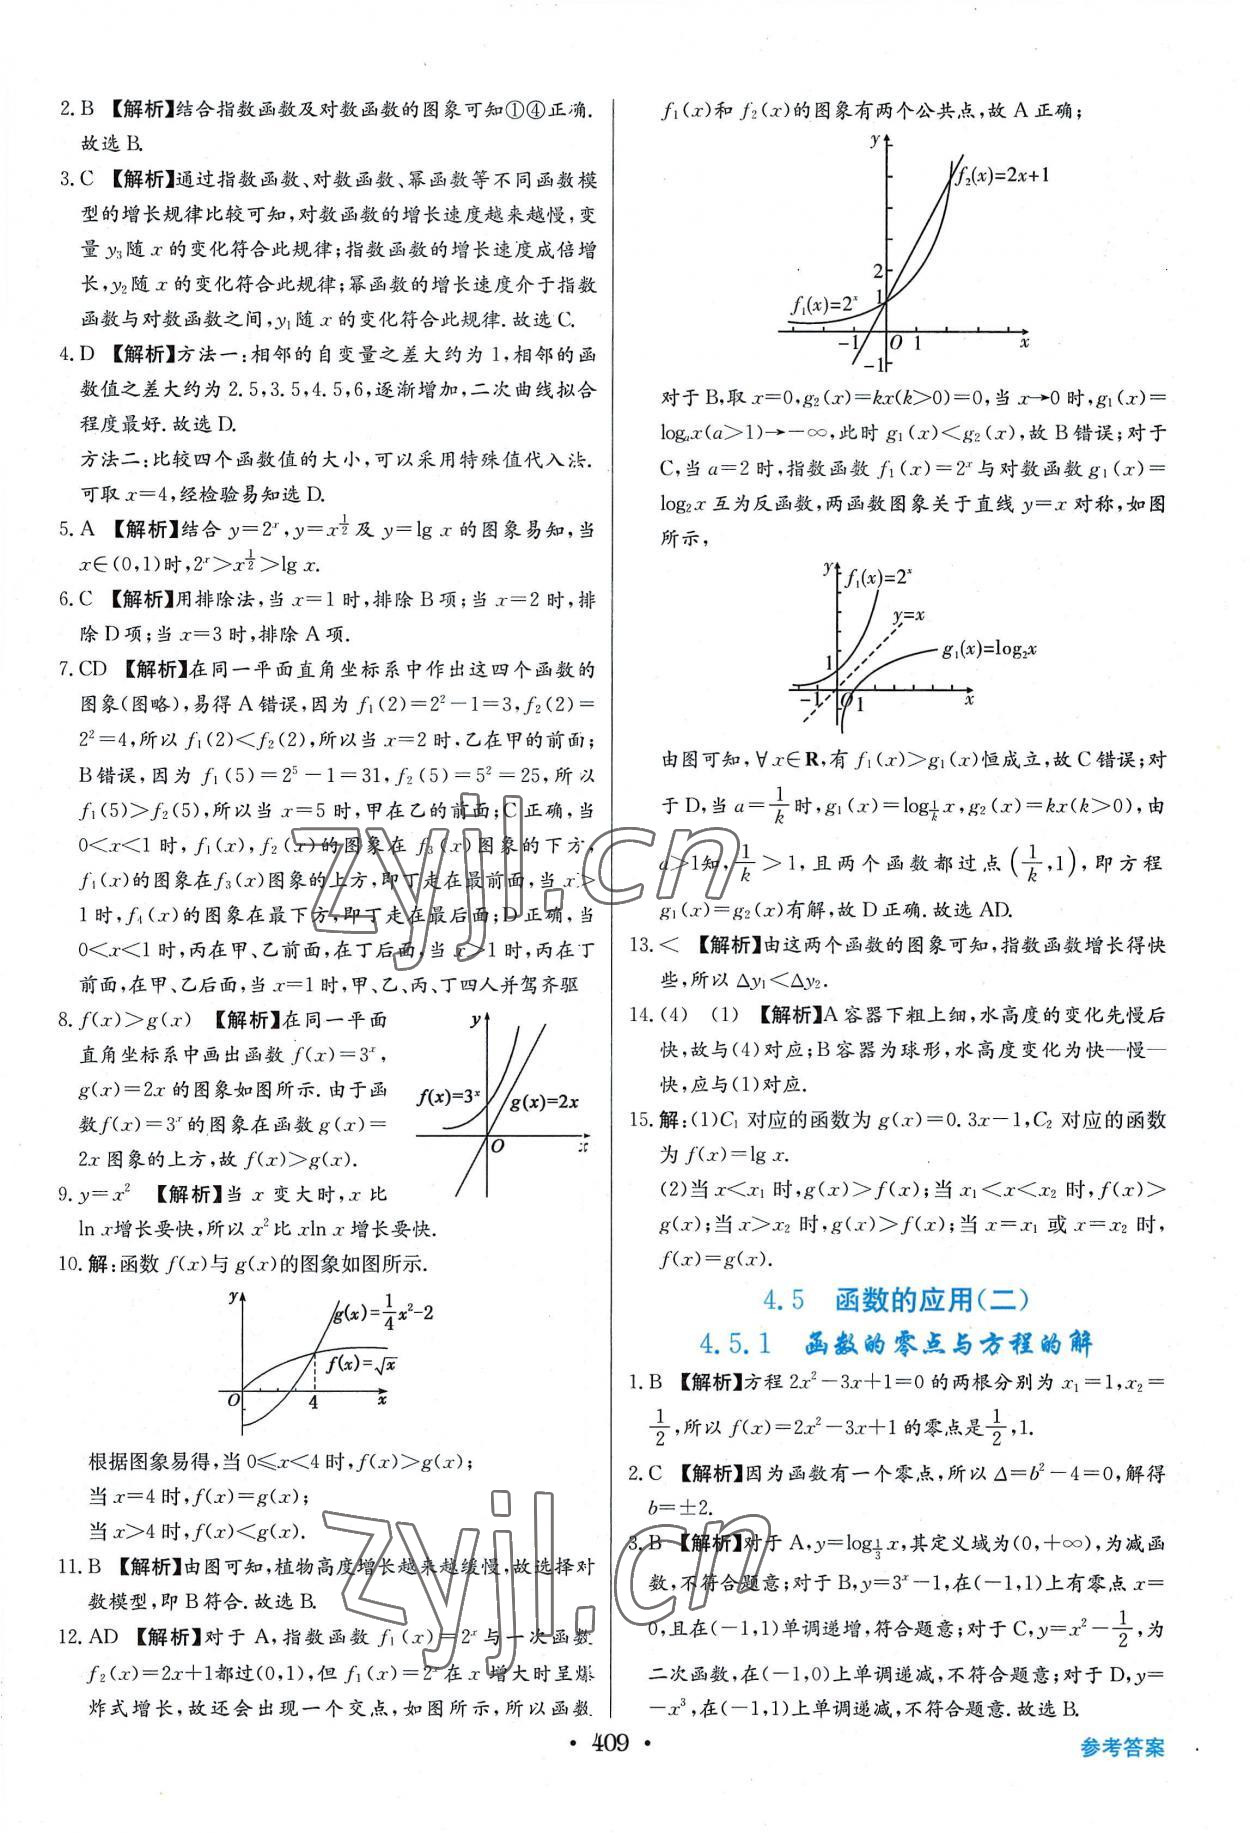 2. B 【解析】结合指数函数及对数函数的图象可知①④正确.
故选 B.
3. C 【解析】通过指数函数、对数函数、幂函数等不同函数模
型的增长规律比较可知,对数函数的增长速度越来越慢,变
量 y₃随 x 的变化符合此规律;指数函数的增长速度成倍增
长,y₂随 x 的变化符合此规律;幂函数的增长速度介于指数
函数与对数函数之间,y₁随 x 的变化符合此规律.故选 C.
4. D 【解析】方法一:相邻的自变量之差大约为 1,相邻的函
数值之差大约为 2.5,3.5,4.5,6,逐渐增加,二次曲线拟合
程度最好.故选 D.
方法二:比较四个函数值的大小,可以采用特殊值代入法.
可取 x=4,经检验易知选 D.
5. A 【解析】结合 y=2ˣ,y=x^{1/2} 及 y=lg x 的图象易知,当
x∈(0,1)时,2ˣ>x^{1/2}>lg x.
6. C 【解析】用排除法,当 x=1 时,排除 B 项;当 x=2 时,排
除 D 项;当 x=3 时,排除 A 项.
7. CD 【解析】在同一平面直角坐标系中作出这四个函数的
图象(图略),易得 A 错误,因为 f₁(2)=2²-1=3,f₂(2)=
2²=4,所以 f₁(2)<f₂(2),所以当 x=2 时,乙在甲的前面;
B错误,因为 f₁(5)=2⁵-1=31,f₂(5)=5²=25,所以
f₁(5)>f₂(5),所以当 x=5 时,甲在乙的前面;C 正确,当
0<x<1 时,f₁(x),f₂(x)的图象在 f₃(x)图象的下方,
f₄(x)的图象在f₃(x)图象的上方,即丁走在最前面,当 x>
1 时,f₄(x)的图象在最下方,即丁走在最后面;D正确,当
0<x<1 时,丙在甲、乙前面,在丁后面,当 x>1 时,丙在丁
前面,在甲、乙后面,当 x=1 时,甲、乙、丙、丁四人并驾齐驱
8. f(x)>g(x) 【解析】在同一平面
直角坐标系中画出函数 f(x)=3ˣ,
g(x)=2x 的图象如图所示.由于函
数f(x)=3ˣ的图象在函数 g(x)=
2x 图象的上方,故 f(x)>g(x).
y
f(x)=3ˣ
g(x)=2x
O
x
9. y=x² 【解析】当 x 变大时,x 比
ln x增长要快,所以 x² 比 xln x 增长要快.
10. 解:函数 f(x)与 g(x)的图象如图所示.
y
g(x)=1/4x²-2
f(x)=√x
O
4
x
根据图象易得,当 0≤x<4 时,f(x)>g(x);
当 x=4 时,f(x)=g(x);
当 x>4 时,f(x)<g(x).
11. B 【解析】由图可知,植物高度增长越来越缓慢,故选择对
数模型,即 B符合.故选 B.
12. AD 【解析】对于 A,指数函数 f₁(x)=2ˣ与一次函数
f₂(x)=2x+1都过(0,1),但 f₁(x)=2ˣ在 x 增大时呈爆
炸式增长,故还会出现一个交点,如图所示,所以函数
f₁(x)和 f₂(x)的图象有两个公共点,故 A 正确;
y
f₂(x)=2x+1
2
f₁(x)=2ˣ
1
-1
O
1
x
-1
对于 B,取 x=0,g₂(x)=kx(k>0)=0,当 x→0 时,g₁(x)=
logₐx(a>1)→-∞,此时 g₁(x)<g₂(x),故 B 错误;对于
C,当 a=2 时,指数函数 f₁(x)=2ˣ与对数函数 g₁(x)=
log₂x 互为反函数,两函数图象关于直线 y=x 对称,如图
所示,
y
f₁(x)=2ˣ
y=x
g₁(x)=log₂x
1
-1
O
1
x
由图可知,∀x∈R,有 f₁(x)>g₁(x)恒成立,故 C 错误;对
于 D,当 a=1/k时,g₁(x)=log_{1/k}x,g₂(x)=kx(k>0),由
a>1知,1/k>1,且两个函数都过点(1/k,1),即方程
g₁(x)=g₂(x)有解,故 D 正确.故选 AD.
13. < 【解析】由这两个函数的图象可知,指数函数增长得快
些,所以 Δy₁<Δy₂.
14. (4) (1) 【解析】A 容器下粗上细,水高度的变化先慢后
快,故与(4)对应;B 容器为球形,水高度变化为快—慢—
快,应与(1)对应.
15. 解:(1)C₁ 对应的函数为 g(x)=0.3x-1,C₂ 对应的函数
为 f(x)=lg x.
(2)当 x<x₁ 时,g(x)>f(x);当 x₁<x<x₂ 时,f(x)>
g(x);当 x>x₂ 时,g(x)>f(x);当 x=x₁ 或 x=x₂ 时,
f(x)=g(x).
4.5 函数的应用(二)
4.5.1 函数的零点与方程的解
1. B 【解析】方程 2x²-3x+1=0 的两根分别为 x₁=1,x₂=
1/2,所以 f(x)=2x²-3x+1 的零点是1/2,1.
2. C 【解析】因为函数有一个零点,所以 Δ=b²-4=0,解得
b=±2.
3. B 【解析】对于 A,y=log_{1/3}x,其定义域为(0,+∞),为减函
数,不符合题意;对于 B,y=3ˣ-1,在(-1,1)上有零点 x=
0,且在(-1,1)单调递增,符合题意;对于 C,y=x²-1/2,为
二次函数,在(-1,0)上单调递减,不符合题意;对于 D,y=
-x³,在(-1,1)上单调递减,不符合题意.故选 B.
• 409 •
参考答案
zyjl.cn
zyjl.cn